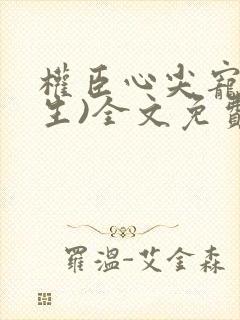 權臣心尖寵
生)全文免費
羅溫-艾金森